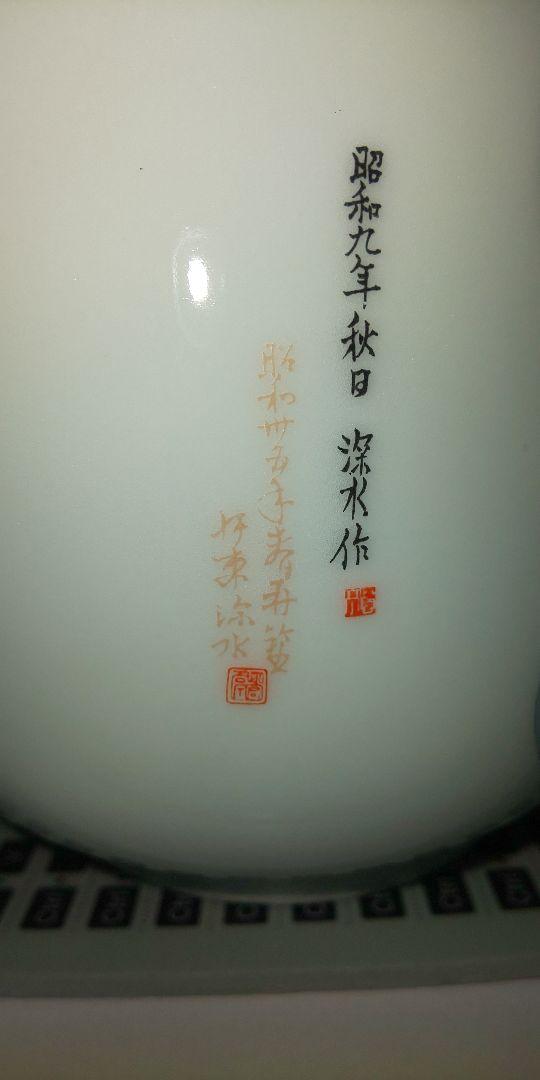 昭和九年秋日 深水作
昭和卅五年春再鑒
伊東深水